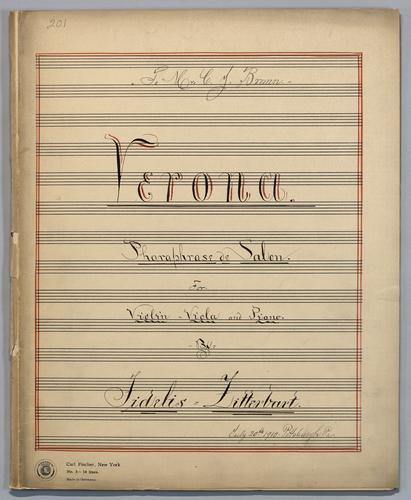 201
To Mr C. J. Braun.
Verona.
Pharaphrase de Salon.
For
Violin - Viola and Piano.
By
Fidelis = Zitterbart.
July 20th 1910. Pittsburgh Pa.
Carl Fischer, New York
No. 5 — 14 lines.
Made in Germany